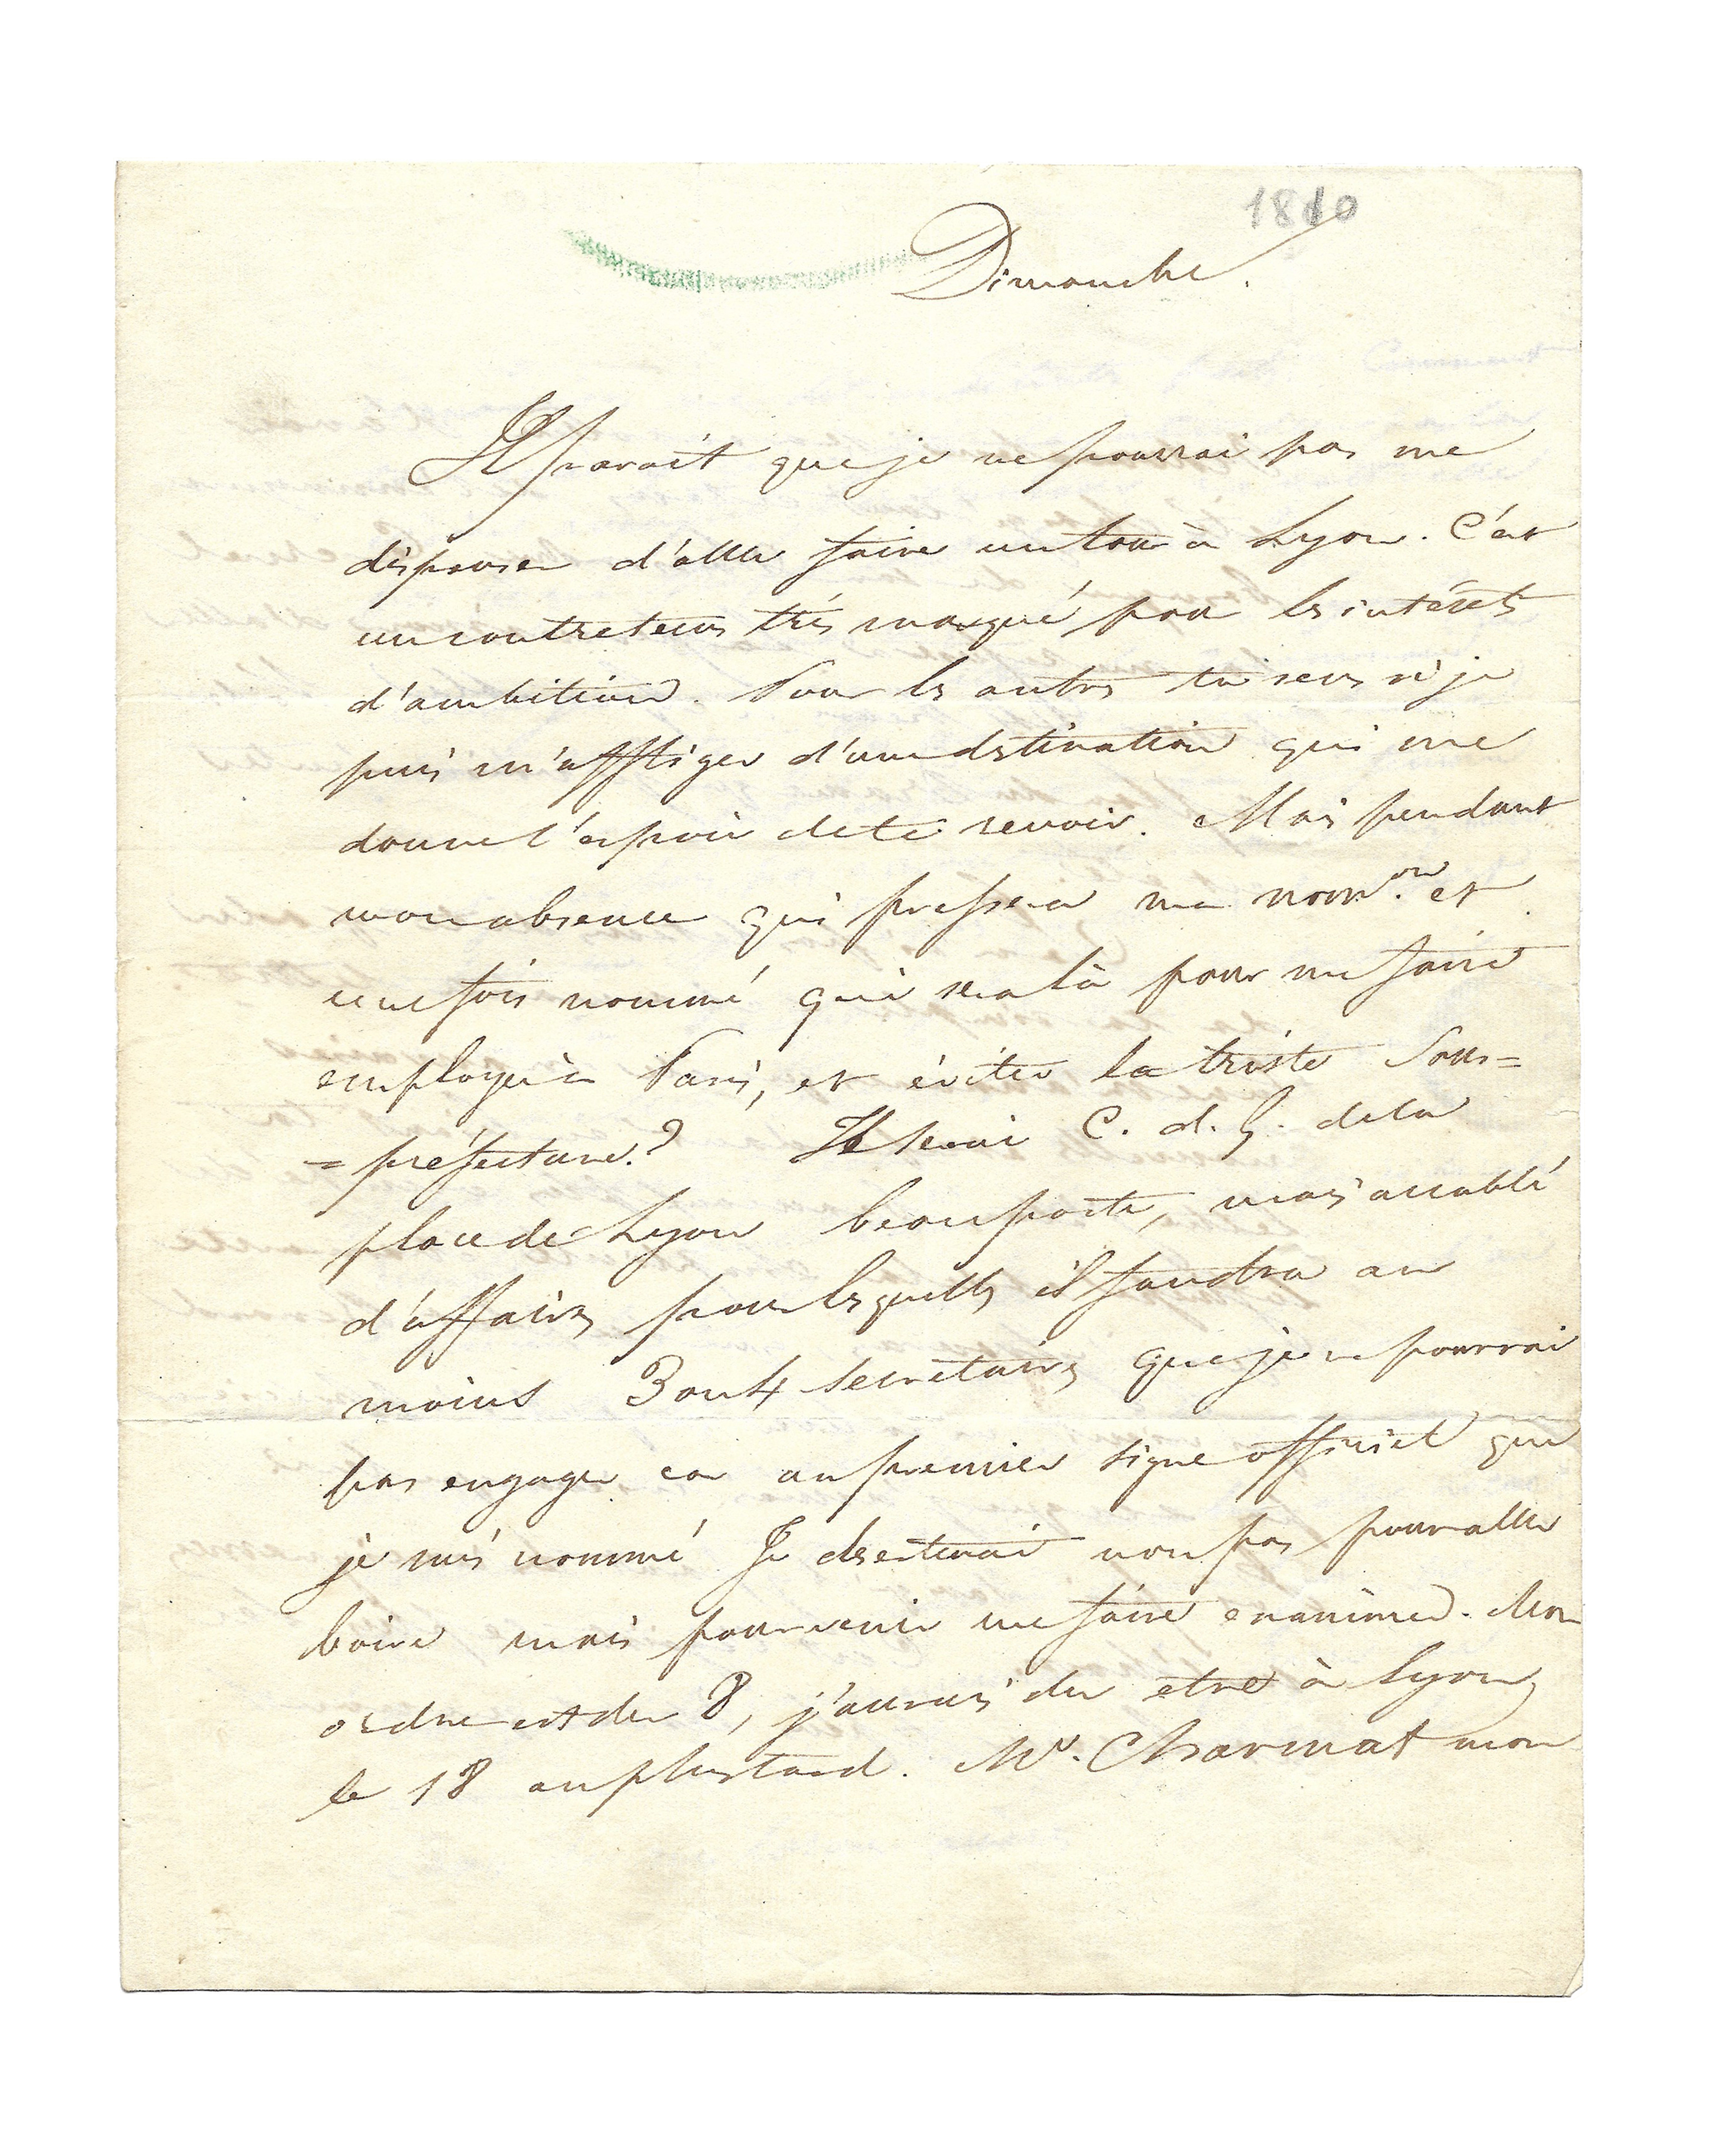 1810
Dimanche.
Il parait que je ne pourrai pas me
dispenser d'aller faire un tour à Lyon. C'est
un contretems très marqué pour les intérets
d'ambition. Pour les autres tu sens si je
puis m'affliger d'une destination qui me
donne l'espoir de te revoir. Mais pendant
mon absence qui pressera ma nomon. et
une fois nommé qui sera là pour me faire
employer à Paris, et éviter la triste Sous=
=préfecture.? Je serai C. d. G. de la
place de Lyon beau poste, mais accablé
d'affaires pour lesquelles il faudra au
moins 3 ou 4 secretaires que je ne pourrai
pas engager car au premier signe officiel que
je suis nommé Je deserterai non pas pour aller
boire mais pour venir me faire examiner. Mon
ordre est du 8, j'aurais du etre à Lyon
le 18 au plus tard. Mr. Charmat mon